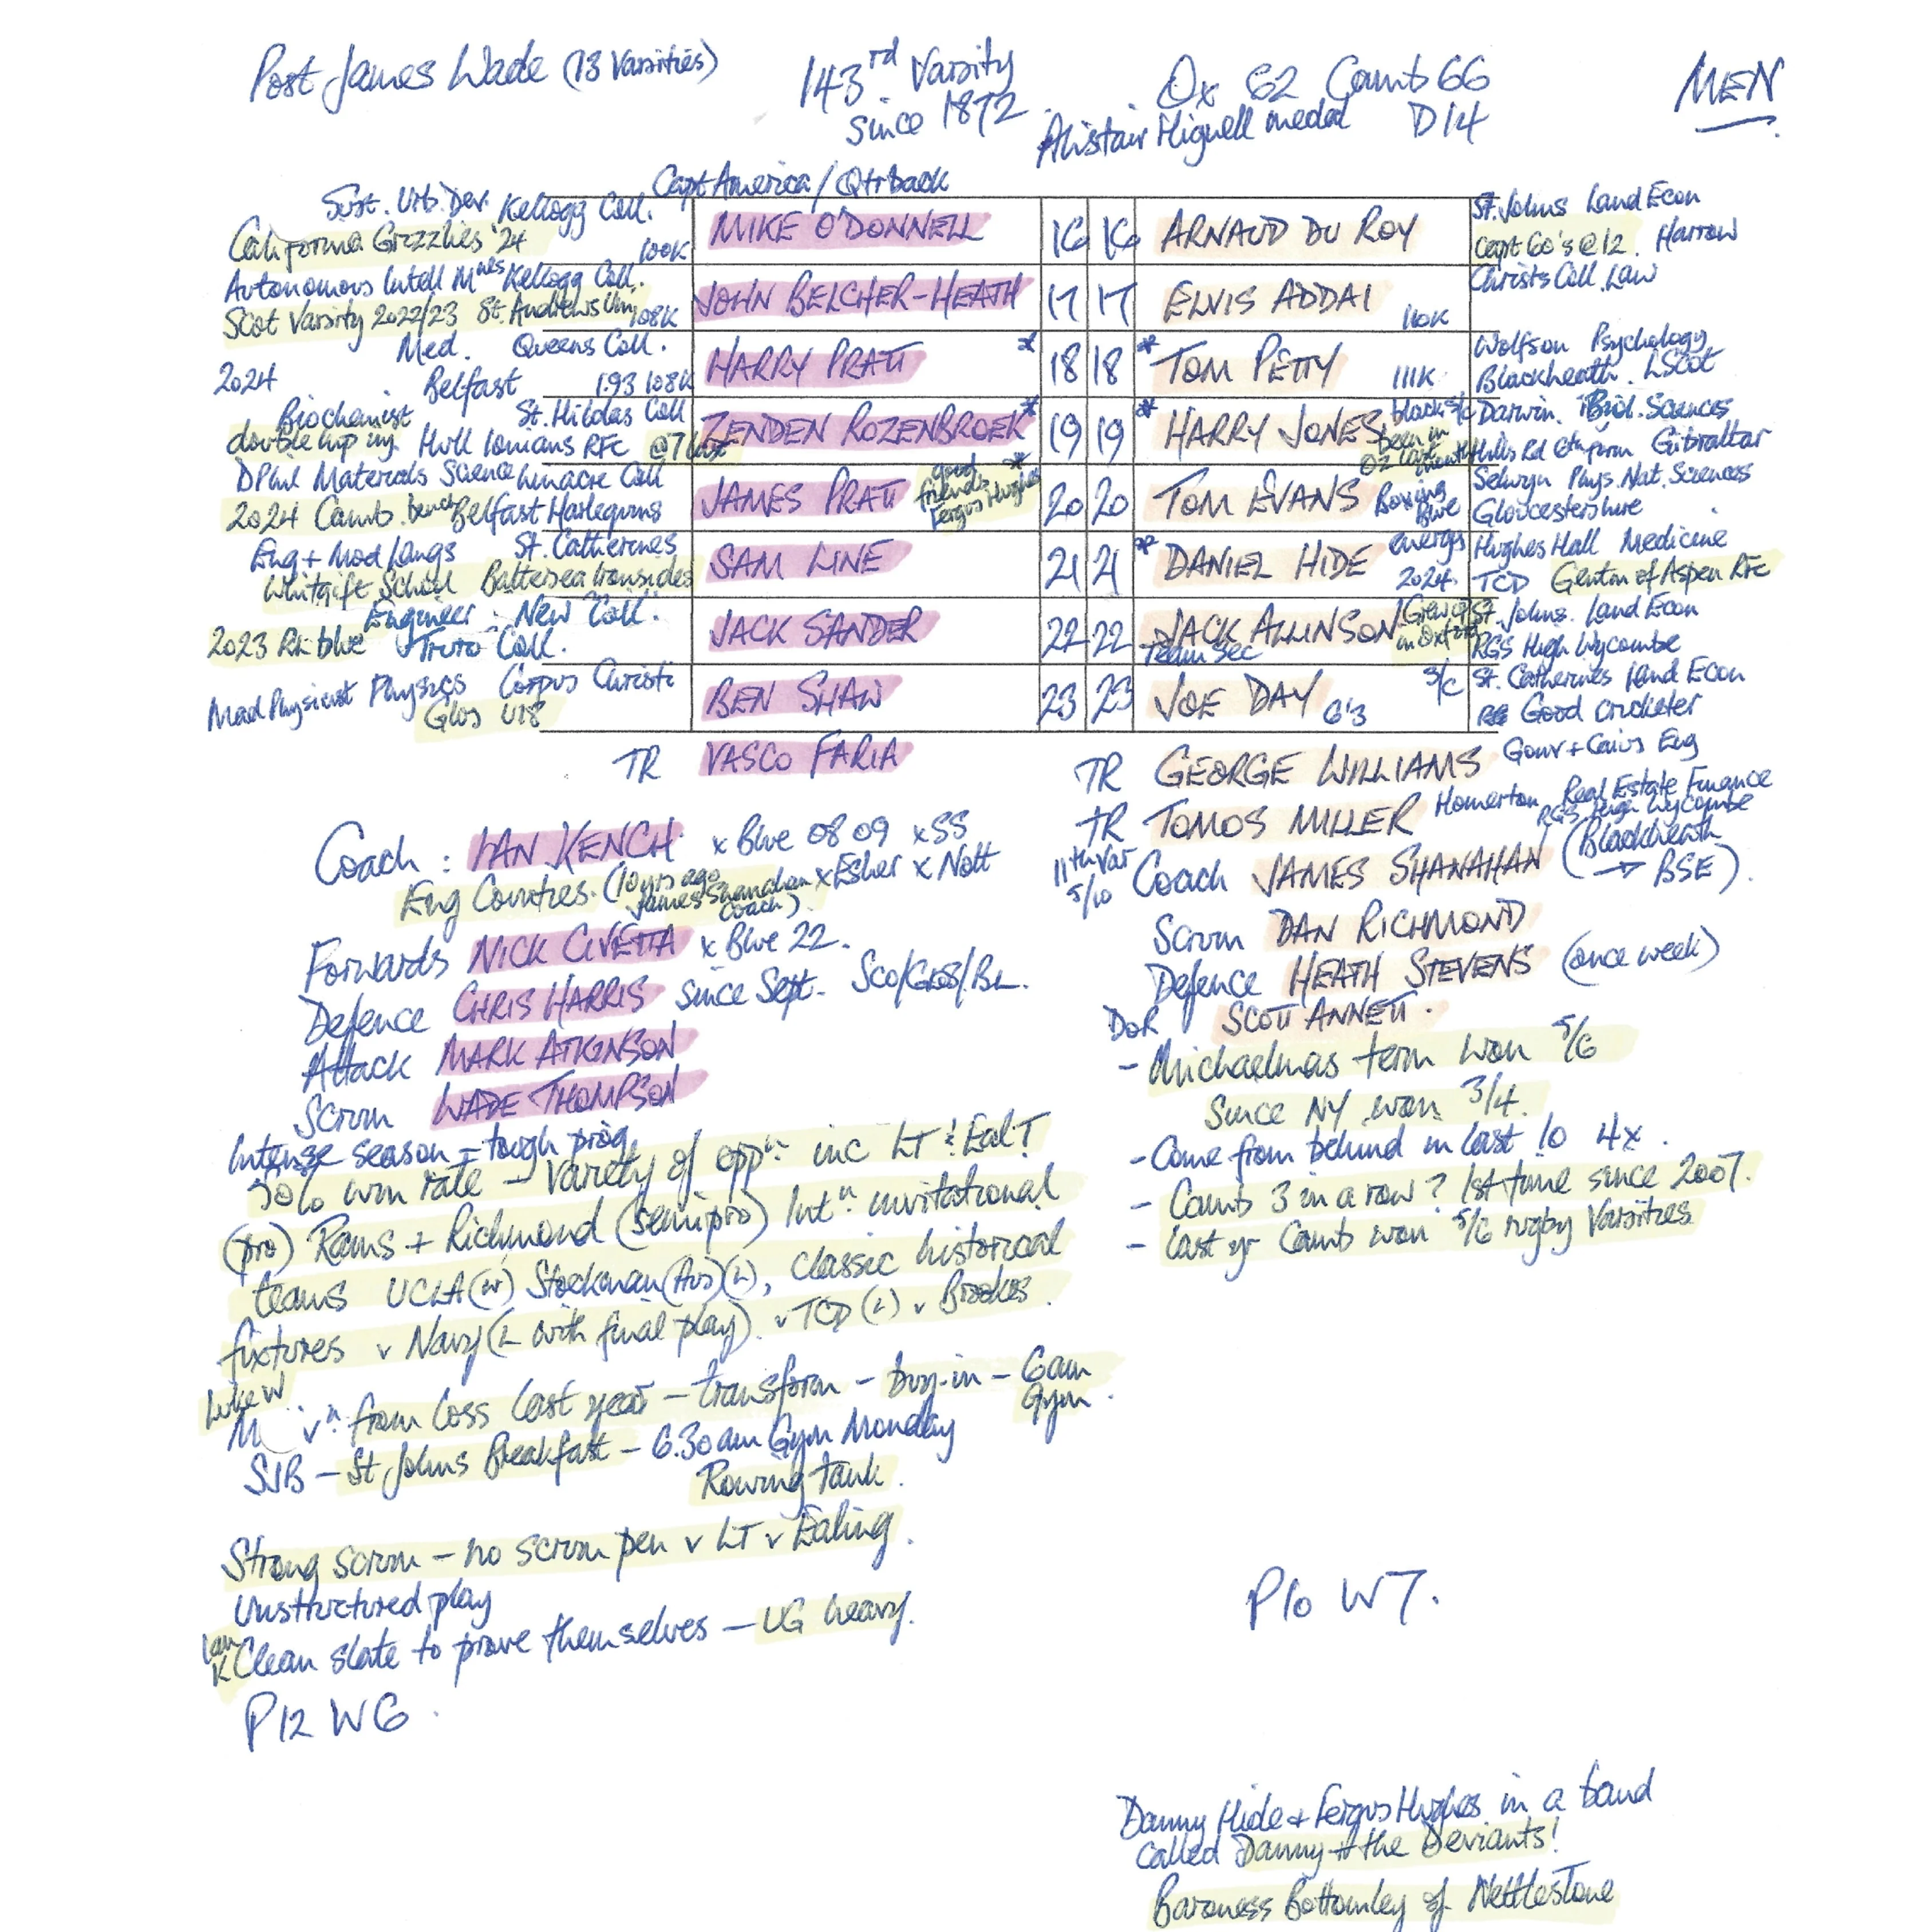 Post James Wade (13 Varsities) 143rd Varsity since 1872 Ox 62 Camb 66 D14 MEN
Alistair Hignell medal
Capt America / Qtrback
Sust. Urb. Dev. Kellogg Coll.
California Grizzlies '24 100K MIKE O'DONNELL 16 16 ARNAUD DU ROY St. Johns Land Econ
Capt 60's @ 12. Harrow
Autonomous Intell Mnes Kellogg Coll.
Scot Varsity 2022/23 St. Andrews Uni 108K JOHN BELCHER-HEATH 17 17 ELVIS ADDAI 110K Christs Coll. Law
Med. Queens Coll.
2024 Belfast 1.93 108K HARRY PRATT * 18 18 * TOM PETTY 111K Wolfson Psychology
Blackheath. LScot
Biochemist St. Hildas Coll
double cup Hull Ionians RFC @7 last ZENDEN ROZENBROEK * 19 19 * HARRY JONES black s/c been in Oz last month Darwin. Biol. Sciences
Hills Rd 6th form Gibraltar
DPhil Materials Science Linacre Coll
2024 Camb. bench Belfast Harlequins JAMES PRATT good friends Fergus Hughes * 20 20 TOM EVANS Boxing Blue Selwyn Phys. Nat. Sciences
Gloucestershire
Eng + Mod Langs St. Catherines
Whitgift School Battersea Ironsides SAM LINE 21 21 * DANIEL HIDE energy 2024. Hughes Hall Medicine
TCD Gentn of Aspen RFC
Engineer. New Coll.
2023 RL blue Truro Coll. JACK SANDER 22 22 JACK ALLINSON Team Sec Grew up in Oxf St. Johns. Land Econ
RGS High Wycombe
Mad Physicist Physics Corpus Christi
Glos U18 BEN SHAW 23 23 JOE DAY 6'3 s/c St. Catherines Land Econ
Good cricketer
TR VASCO FARIA TR GEORGE WILLIAMS Gonv + Caius Eng
TR TOMOS MILLER Homerton Real Estate Finance
RGS High Wycombe
Coach : IAN KENCH x Blue 08 09 x SS
Eng Counties. (10 yrs ago James Shanahan coach) x Esher x Nott
11th Var 5/10 Coach JAMES SHANAHAN (Blackheath → BSE).
Forwards NICK CIVETTA x Blue 22.
Defence CHRIS HARRIS since Sept. Sco/Glos/BL.
Attack MARK ATKINSON
Scrum WADE THOMPSON
Scrum DAN RICHMOND
Defence HEATH STEVENS (once week)
DoR SCOTT ANNETT.
- Michaelmas term won 5/6
Since NY won 3/4.
- Come from behind in last 10 4x.
- Camb 3 in a row? 1st time since 2007.
- last yr Camb won 5/6 rugby Varsities
Intense season - tough prog.
50% win rate - variety of oppn: inc LT & Eal T
(pro) Rams + Richmond (semipro) Intn invitational
teams UCLA (w) Stockman (Aus) (L), classic historical
fixtures v Navy (L with final play). v TCD (L) v Brookes.
Luke W
from loss last year - transform - buy-in - 6am Gym.
SJB - St Johns Breakfast - 6.30am Gym Monday
Rowing tank.
Strong scrum - no scrum pen v LT v Ealing.
Unstructured play
Ian K Clean slate to prove themselves - UG heavy.
P12 W6.
P10 W7.
Danny Hide + Fergus Hughes in a band
called Danny + the Deviants!
Baroness Bottomley of Nettlestone